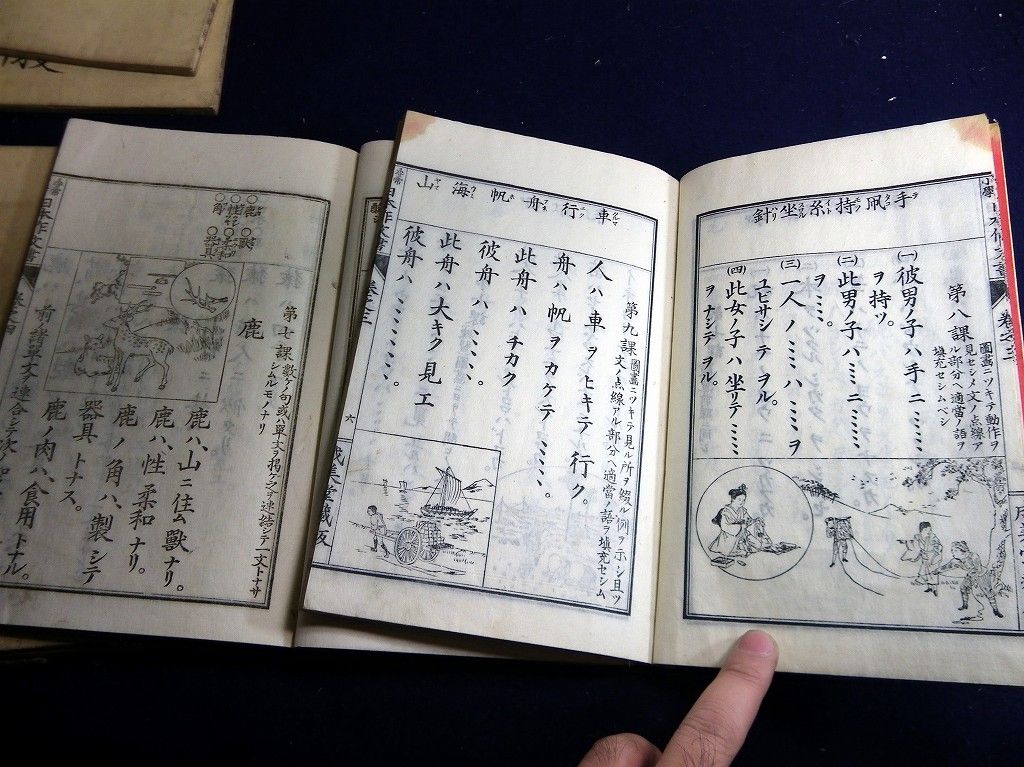 手ヲ凧持糸坐針
第八課
圖畫ニツキテ動作ヲ
見セシメ文ノ点線ア
ル部分ヘ適當ノ語ヲ
填充セシムベシ
(一)彼男ノ子ハ手ニ……
ヲ持ツ。
(二)此男ノ子ハ……ニ……
ヲ……。
(三)一人ノ……ハ……ヲ
ユビサシテヲル。
(四)此女ノ子ハ坐リテ……
ヲナシテヲル。
車行舟帆海山
第九課
圖畫ニツキテ見ル所ヲ綴ル例ヲ示シ且ツ
文ノ点線アル部分ヘ適當ノ語ヲ填充セシム
人ハ車ヲヒキテ行ク。
舟ハ帆ヲカケテ……。
此舟ハチカク
彼舟ハ……。
此舟ハ大キク見エ
彼舟ハ……………。
日本作文書
卷之二
六
成美堂藏版
鹿 獸
性 柔和
角 器具
第七課
數ケノ句或ハ單文ヲ掲ゲ
テ連結シテ一文トナサ
シムルモノナリ
鹿
鹿ハ、山ニ住ム獸ナリ。
鹿ハ、性柔和ナリ。
鹿ノ角ハ、製シテ
器具トナス。
鹿ノ肉ハ、食用トナル。
前諸單文ノ連合
日本作文書